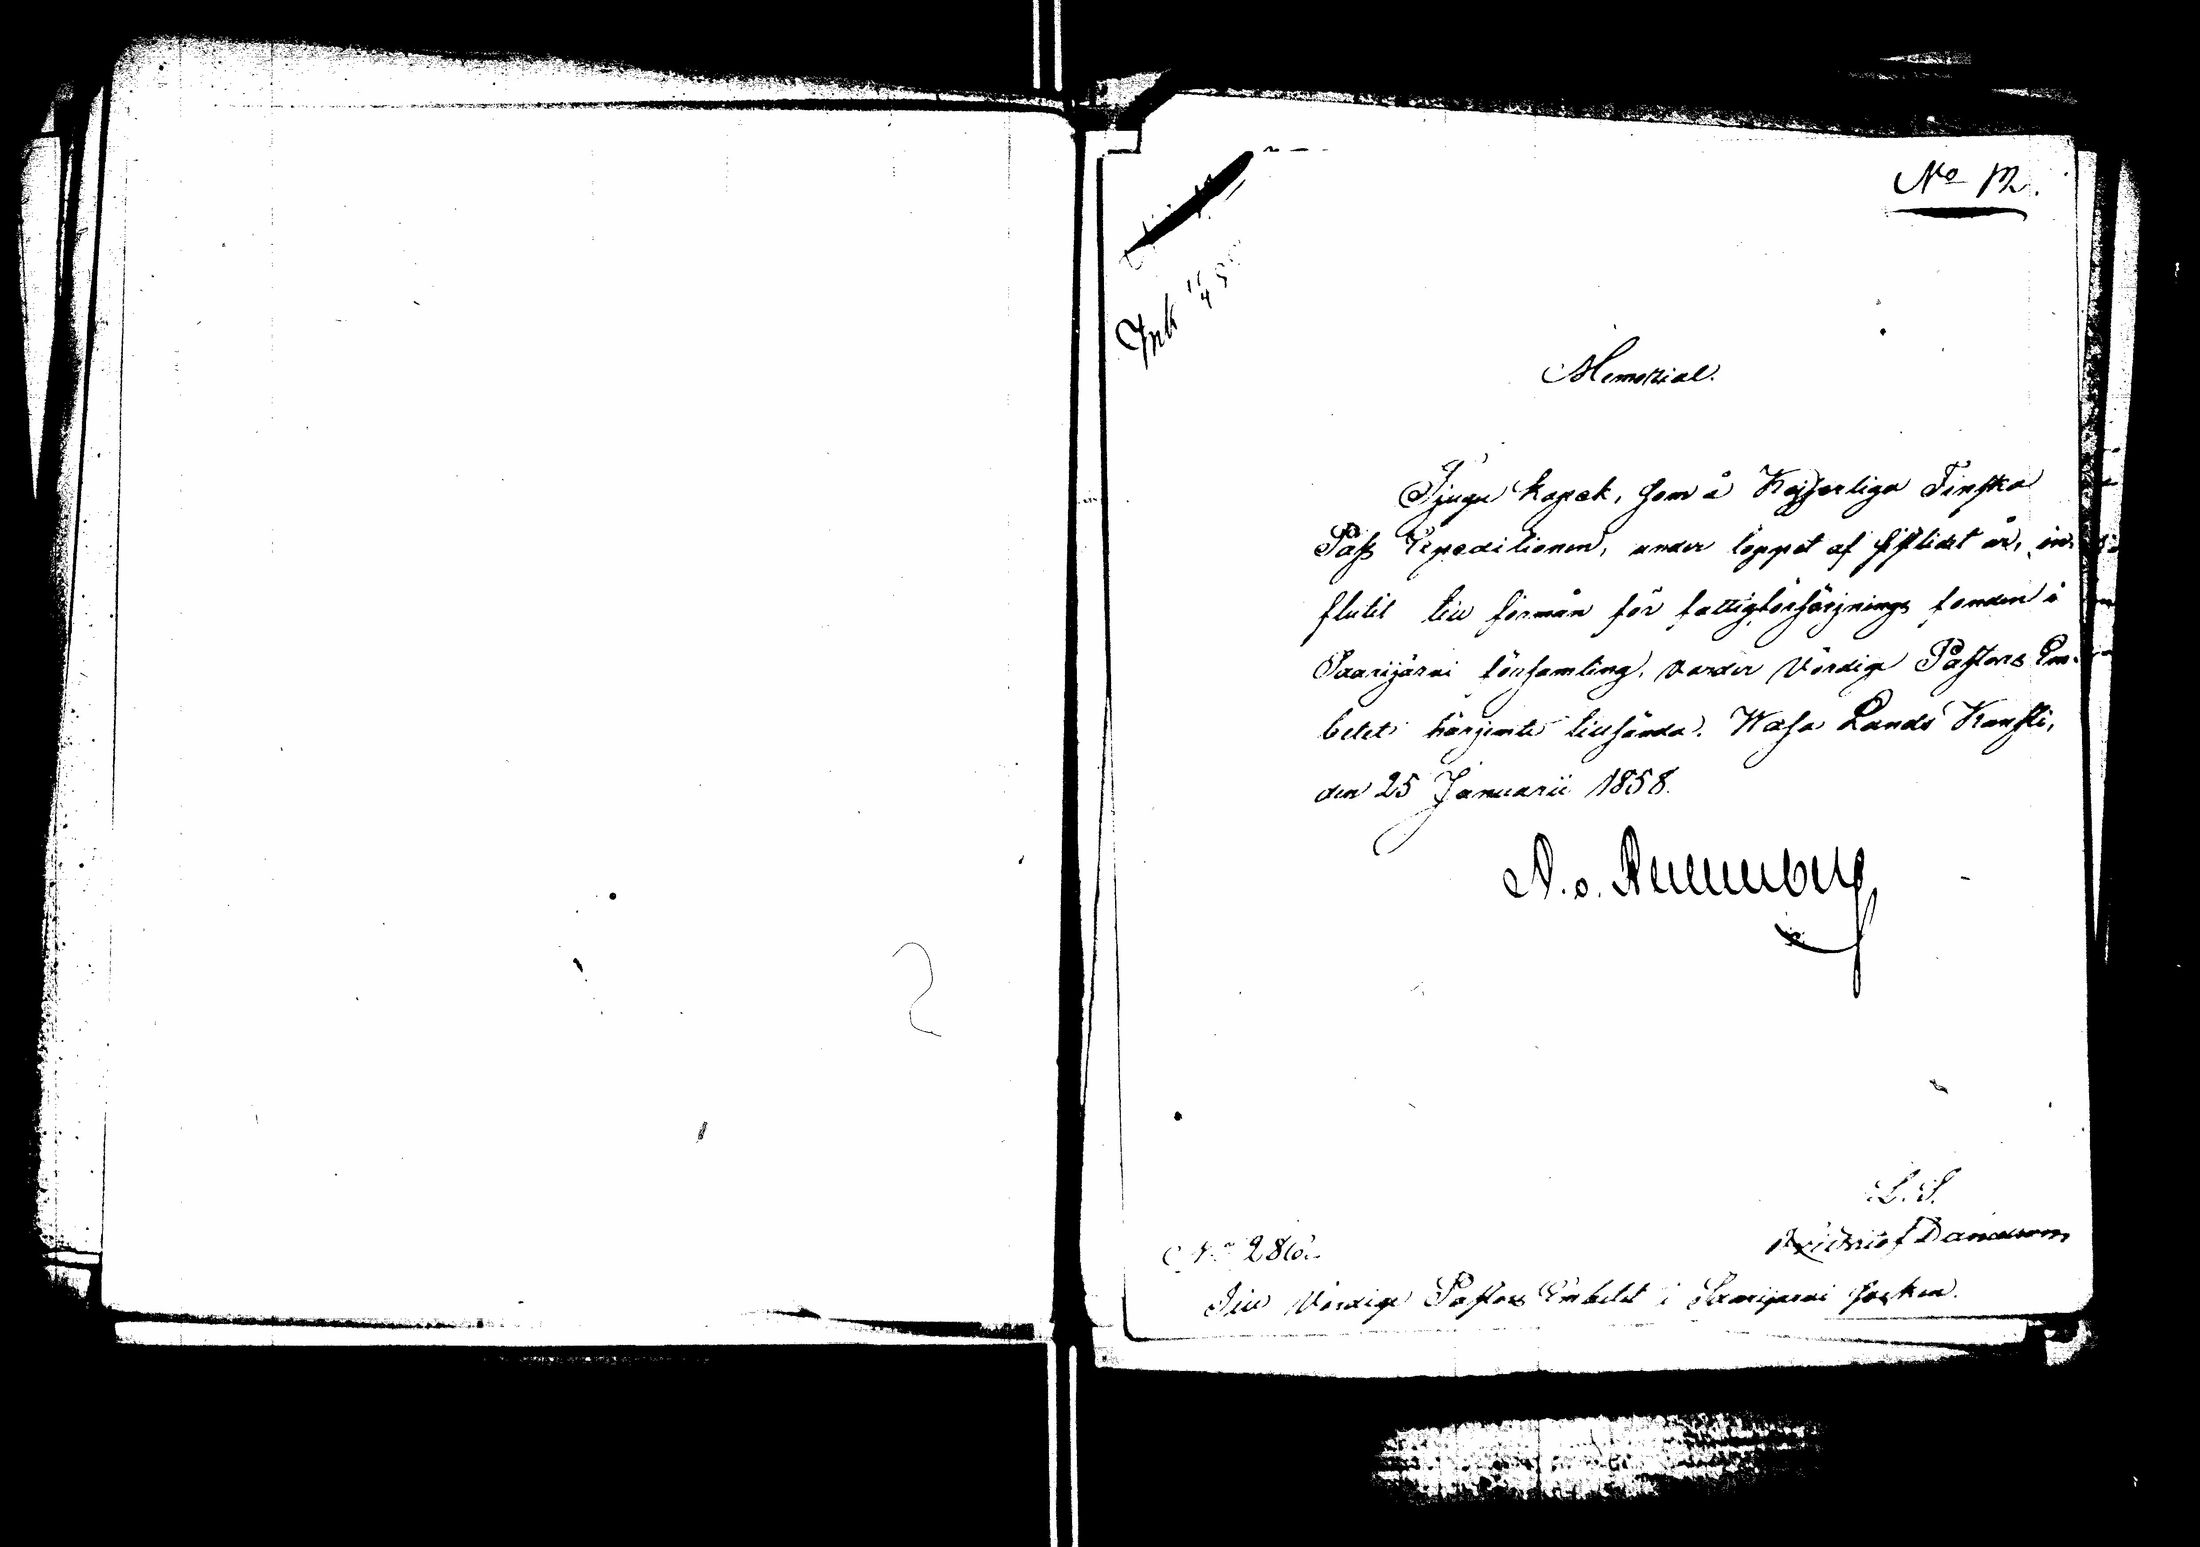 No 12.
Ink 11/4 58
Memorial.
Tjugu kopek, som å Kejserliga Finska
Pass Expeditionen, under loppet af sistlidet år, in-
flutit till förmån för fattigförsörjnings fonden i
Saarijärvi församling, varder Vördige Pastors Em-
betet härjemte tillsända. Wasa Lands Kansli,
den 25 Januarii 1858.
L. S.
No 286.
Till Vördige Pastors Embetet i Saarijärvi socken.